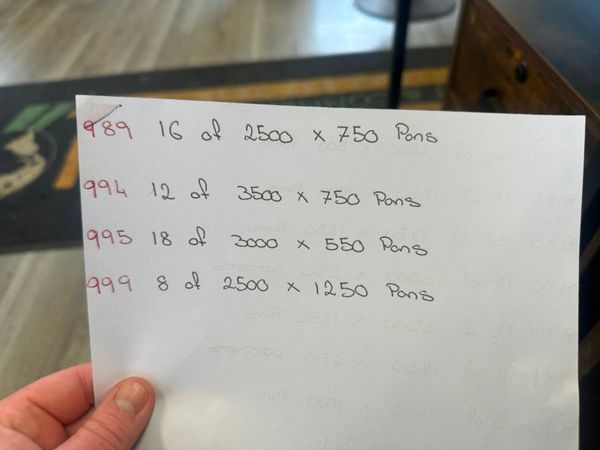 989 16 of 2500 x 750 Pans
994 12 of 3500 x 750 Pans
995 18 of 3000 x 550 Pans
999 8 of 2500 x 1250 Pans